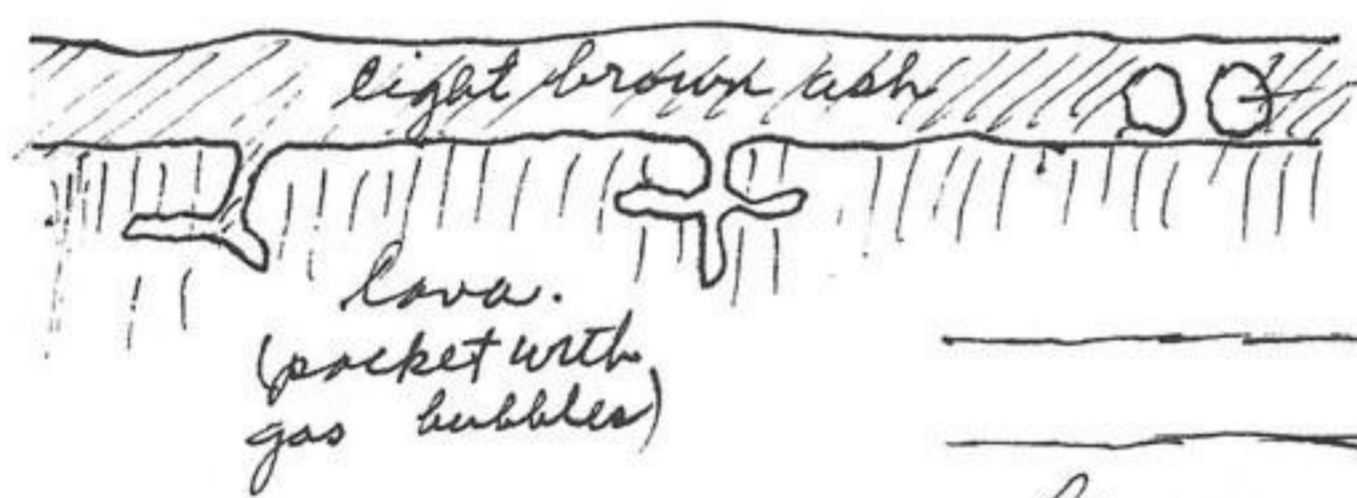 light brown ash
lava.
(pocket with
gas bubbles)